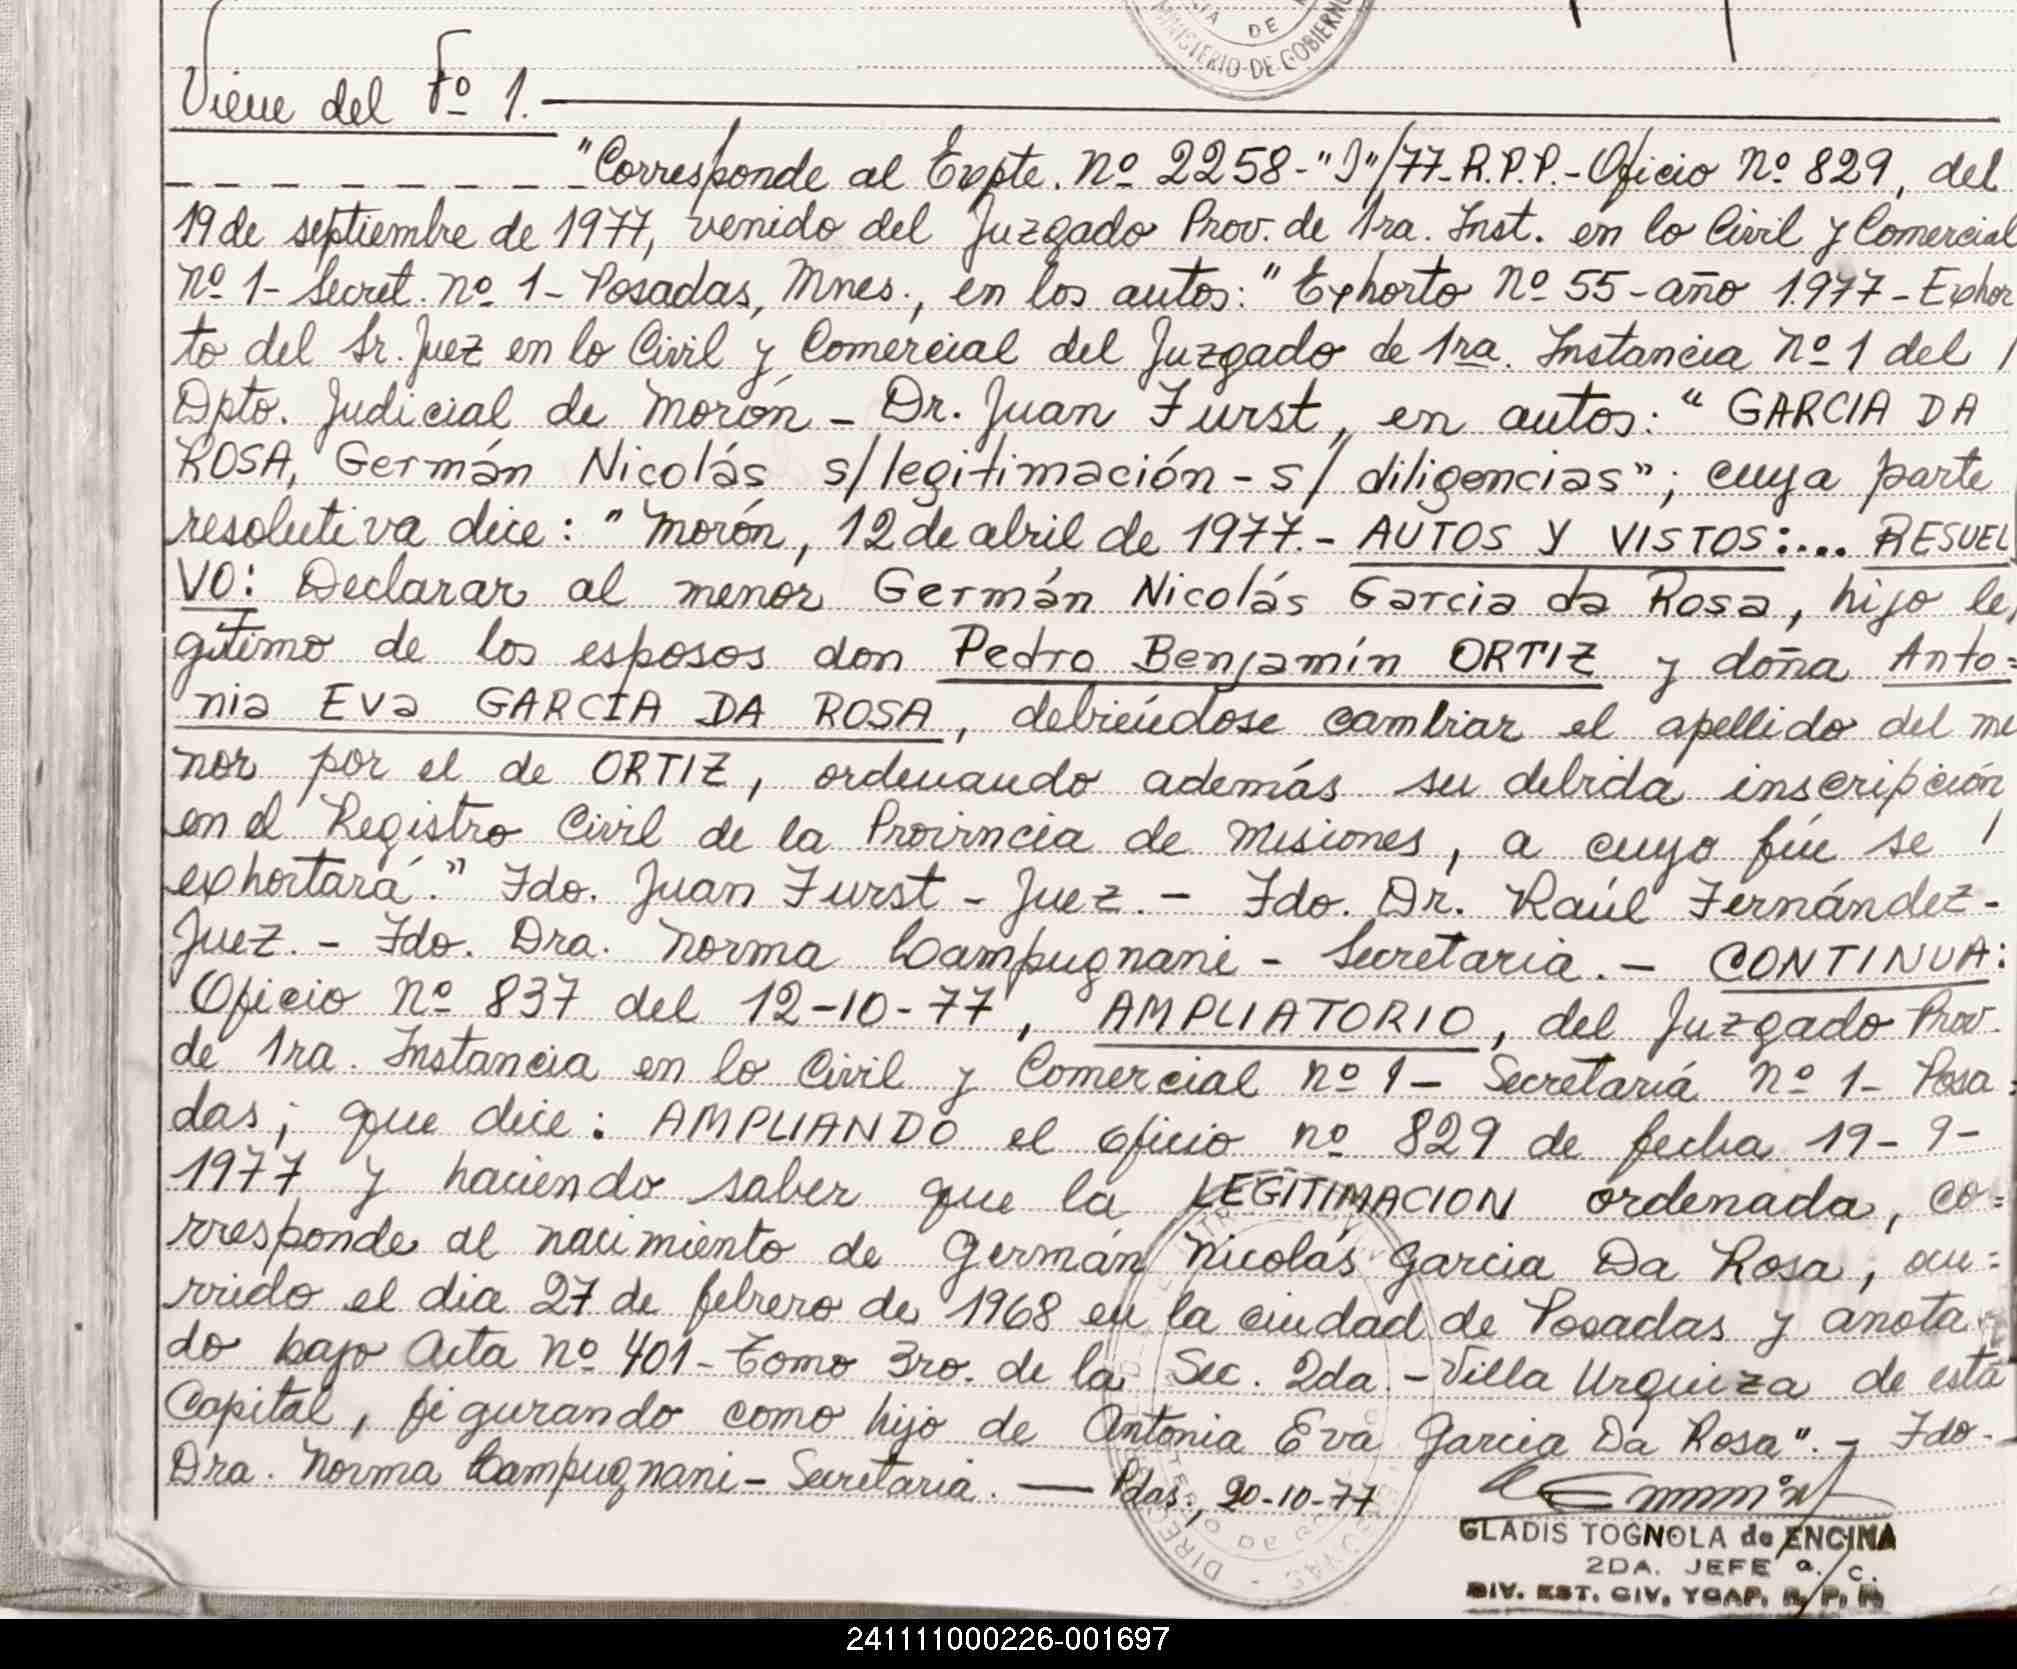 MINISTERIO DE GOBIERNO
Viene del Fº 1.
"Corresponde al Expte. Nº 2258-"J"/77-R.P.P.-Oficio Nº 829, del
19 de septiembre de 1977, venido del Juzgado Prov. de 1ra. Inst. en lo Civil y Comercial
Nº 1- Secret. nº 1- Posadas, Mnes., en los autos: "Exhorto Nº 55-año 1.977-Exhor
to del Sr. Juez en lo Civil y Comercial del Juzgado de 1ra. Instancia Nº 1 del /
Dpto. Judicial de Morón - Dr. Juan Furst, en autos: "GARCIA DA
ROSA, Germán Nicolás s/legitimación - s/ diligencias"; cuya parte
resolutiva dice: "Morón, 12 de abril de 1977.- AUTOS Y VISTOS:... RESUEL
VO: Declarar al menor Germán Nicolás Garcia da Rosa, hijo le
gítimo de los esposos don Pedro Benjamín ORTIZ y doña Anto=
nia Eva GARCIA DA ROSA, debiéndose cambiar el apellido del me
nor por el de ORTIZ, ordenando además su debida inscripción
en el Registro Civil de la Provincia de Misiones, a cuyo fin se /
exhortará." Fdo. Juan Furst - Juez.- Fdo. Dr. Raúl Fernández-
Juez.- Fdo. Dra. Norma Campugnani - Secretaria.- CONTINUA:
Oficio Nº 837 del 12-10-77, AMPLIATORIO, del Juzgado Prov.
de 1ra. Instancia en lo Civil y Comercial nº 1- Secretaría nº 1- Posa=
das; que dice: AMPLIANDO el oficio nº 829 de fecha 19-9-
1977 y haciendo saber que la LEGITIMACION ordenada, co=
rresponde al nacimiento de Germán Nicolás Garcia Da Rosa, ocu=
rrido el dia 27 de febrero de 1968 en la ciudad de Posadas y anota
do bajo Acta Nº 401-Tomo 3ro. de la Sec. 2da.-Villa Urquiza de esta
Capital, figurando como hijo de Antonia Eva Garcia Da Rosa".- Fdo.-
Dra. Norma Campugnani - Secretaria. — Pdas., 20-10-77
GLADIS TOGNOLA de ENCINA
2DA. JEFE a. c.
DIV. EST. CIV. YCAP. R. P. P.
241111000226-001697